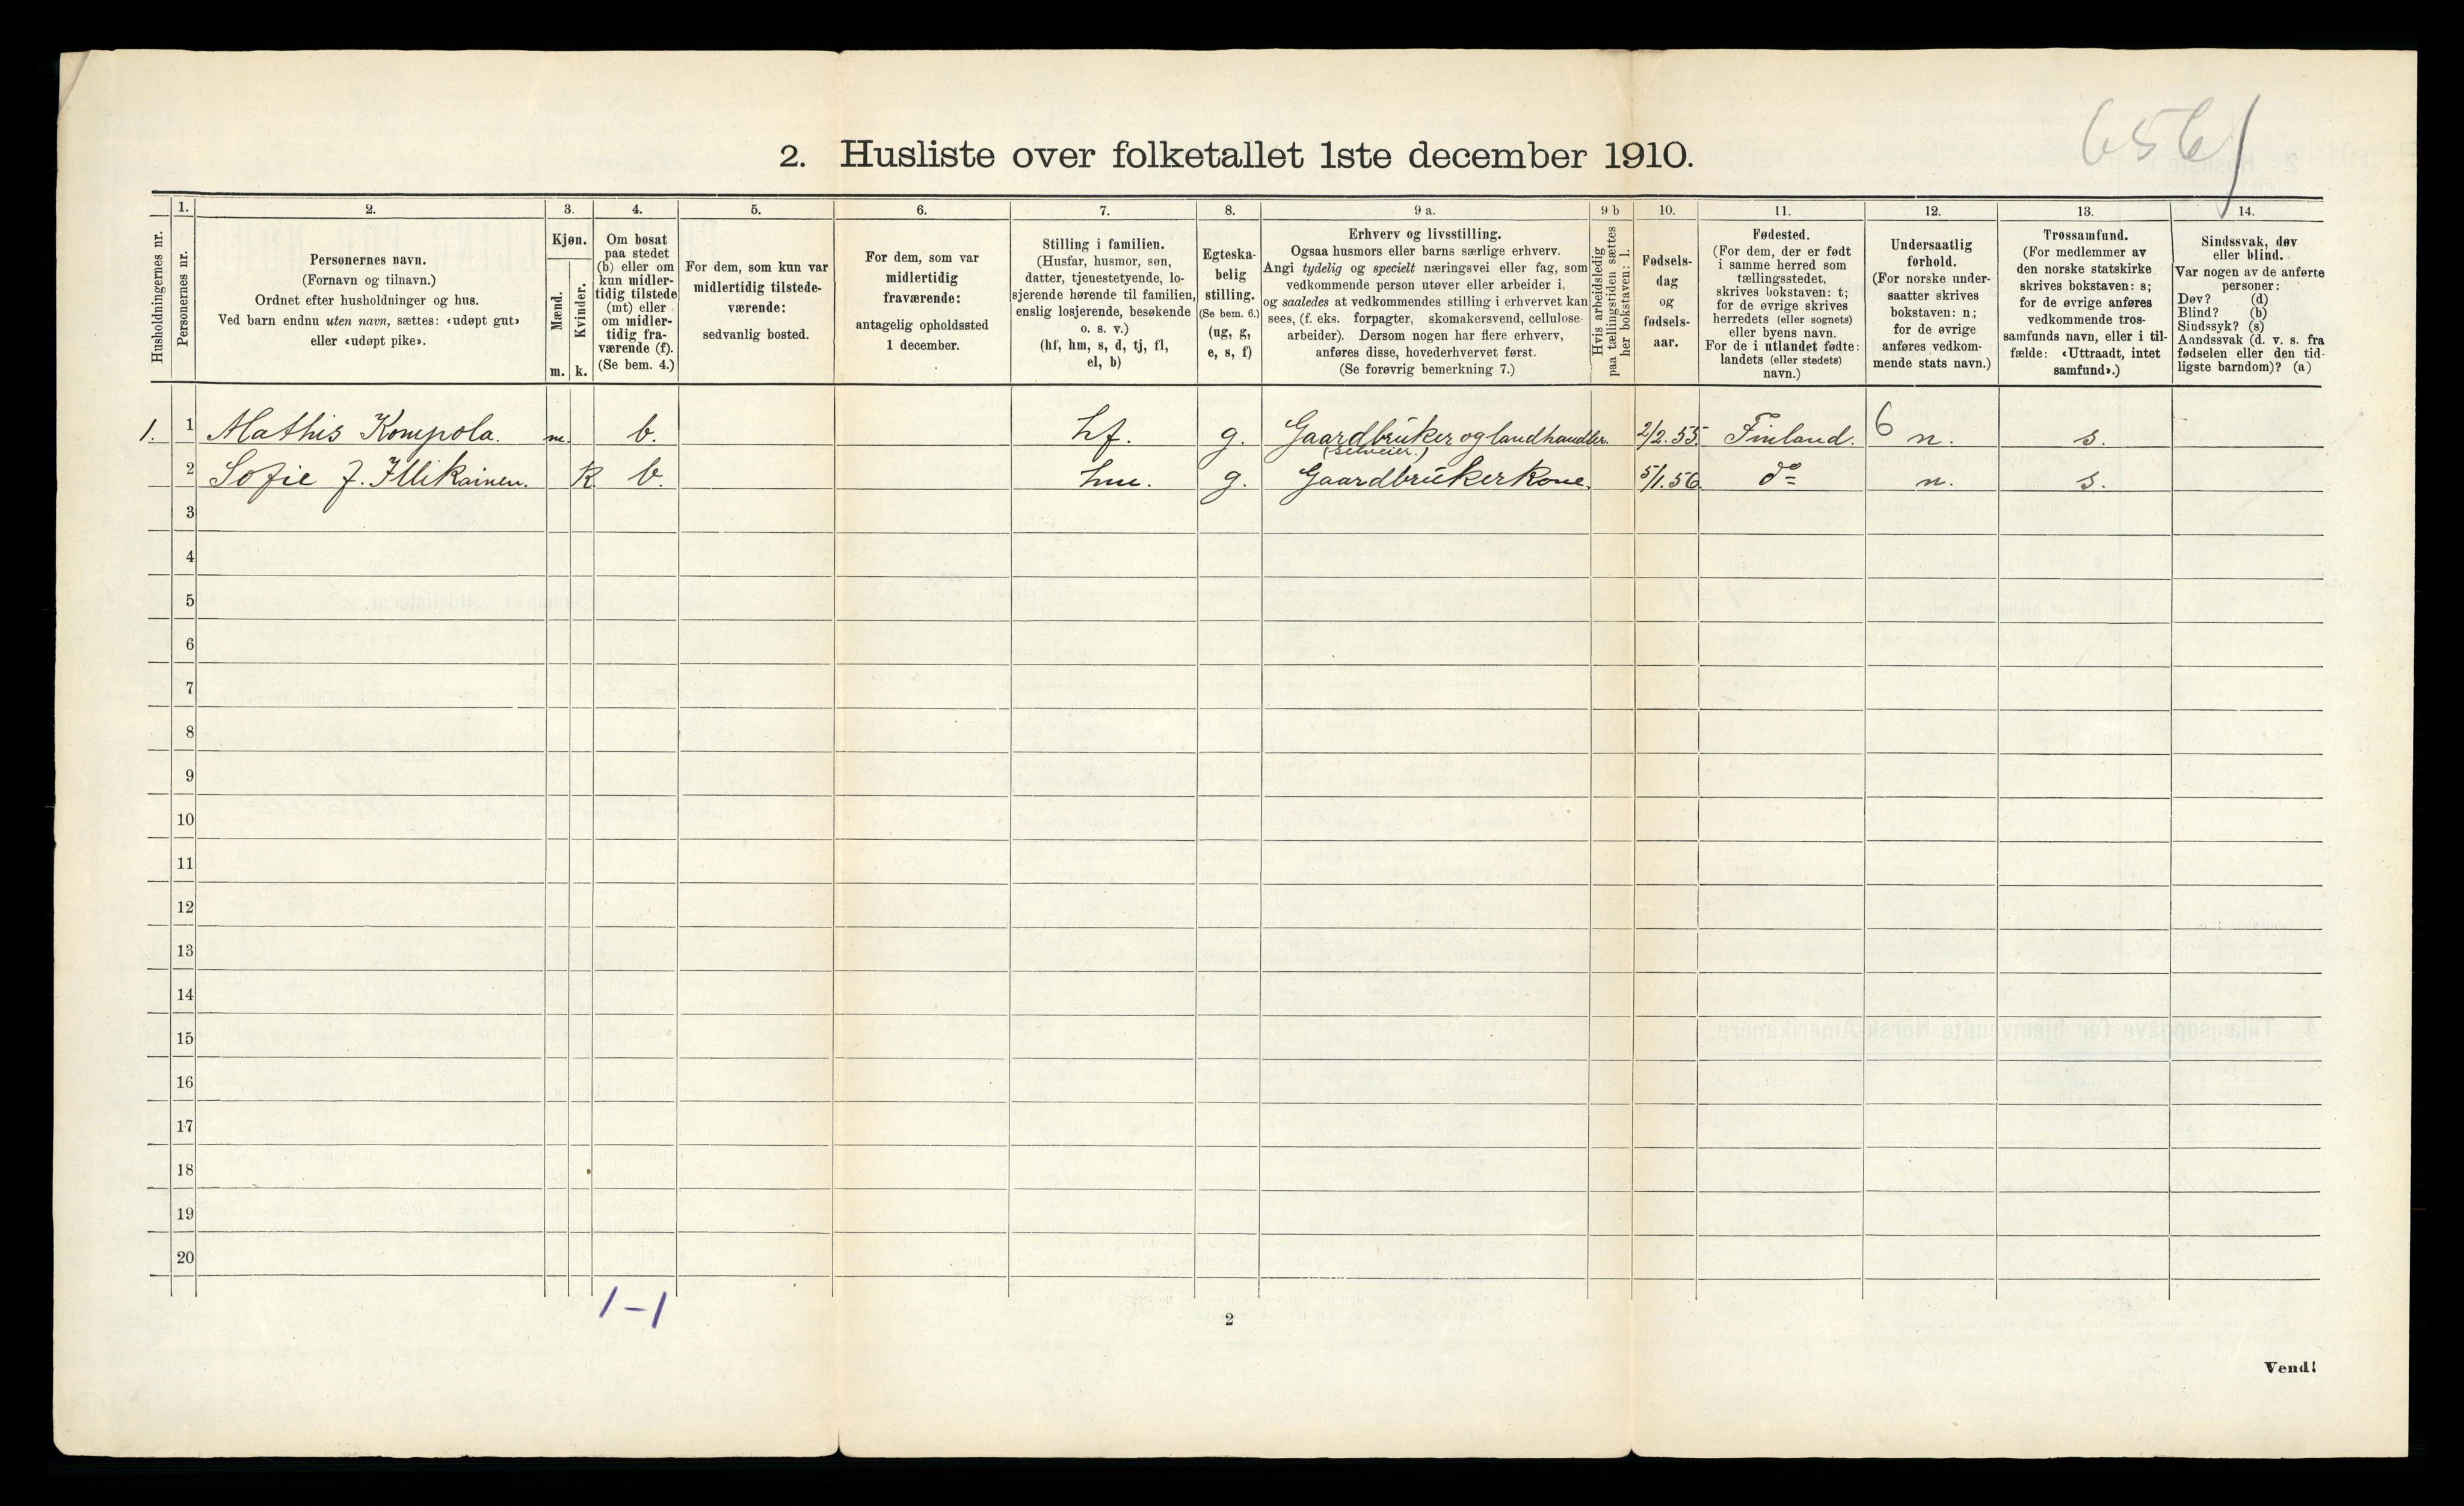 6561
2. Husliste over folketallet 1ste december 1910.
Husholdningernes nr.
1.
Personernes nr.
2.
Personernes navn.
(Fornavn og tilnavn.)
Ordnet efter husholdninger og hus.
Ved barn endnu uten navn, sættes: «udøpt gut»
eller «udøpt pike».
3.
Kjøn.
Mænd.
Kvinder.
m. k.
4.
Om bosat
paa stedet
(b) eller om
kun midler-
tidig tilstede
(mt) eller
om midler-
tidig fra-
værende (f).
(Se bem. 4.)
5.
For dem, som kun var
midlertidig tilstede-
værende:
sedvanlig bosted.
6.
For dem, som var
midlertidig
fraværende:
antagelig opholdssted
1 december.
7.
Stilling i familien.
(Husfar, husmor, søn,
datter, tjenestetyende, lo-
sjerende hørende til familien,
enslig losjerende, besøkende
o. s. v.)
(hf, hm, s, d, tj, fl,
el, b)
8.
Egteska-
belig
stilling.
(Se bem. 6.)
(ug, g,
e, s, f)
9 a.
Erhverv og livsstilling.
Ogsaa husmors eller barns særlige erhverv.
Angi tydelig og specielt næringsvei eller fag, som
vedkommende person utøver eller arbeider i,
og saaledes at vedkommendes stilling i erhvervet kan
sees, (f. eks. forpagter, skomakersvend, cellulose-
arbeider). Dersom nogen har flere erhverv,
anføres disse, hovederhvervet først.
(Se forøvrig bemerkning 7.)
9 b
Hvis arbeidsledig
paa tællingstiden sættes
her bokstaven: l.
10.
Fødsels-
dag
og
fødsels-
aar.
11.
Fødested.
(For dem, der er født
i samme herred som
tællingsstedet,
skrives bokstaven: t;
for de øvrige skrives
herredets (eller sognets)
eller byens navn.
For de i utlandet fødte:
landets (eller stedets)
navn.)
12.
Undersaatlig
forhold.
(For norske under-
saatter skrives
bokstaven: n;
for de øvrige
anføres vedkom-
mende stats navn.)
13.
Trossamfund.
(For medlemmer av
den norske statskirke
skrives bokstaven: s;
for de øvrige anføres
vedkommende tros-
samfunds navn, eller i til-
fælde: «Uttraadt, intet
samfund».)
14.
Sindssvak, døv
eller blind.
Var nogen av de anførte
personer:
Døv? (d)
Blind? (b)
Sindssyk? (s)
Aandssvak (d. v. s. fra
fødselen eller den tid-
ligste barndom)? (a)
1. 1 Mathis Kompola. m. b. hf. g. Gaardbruker og landhandler. 2/2.55. Finland. 6 n. s.
(selveier.)
2 Sofie J. Illikainen. k b. hm. g. Gaardbrukerkone. 5/1.56. do n. s.
3
4
5
6
7
8
9
10
11
12
13
14
15
16
17
18
19
20
1-1
2
Vend!